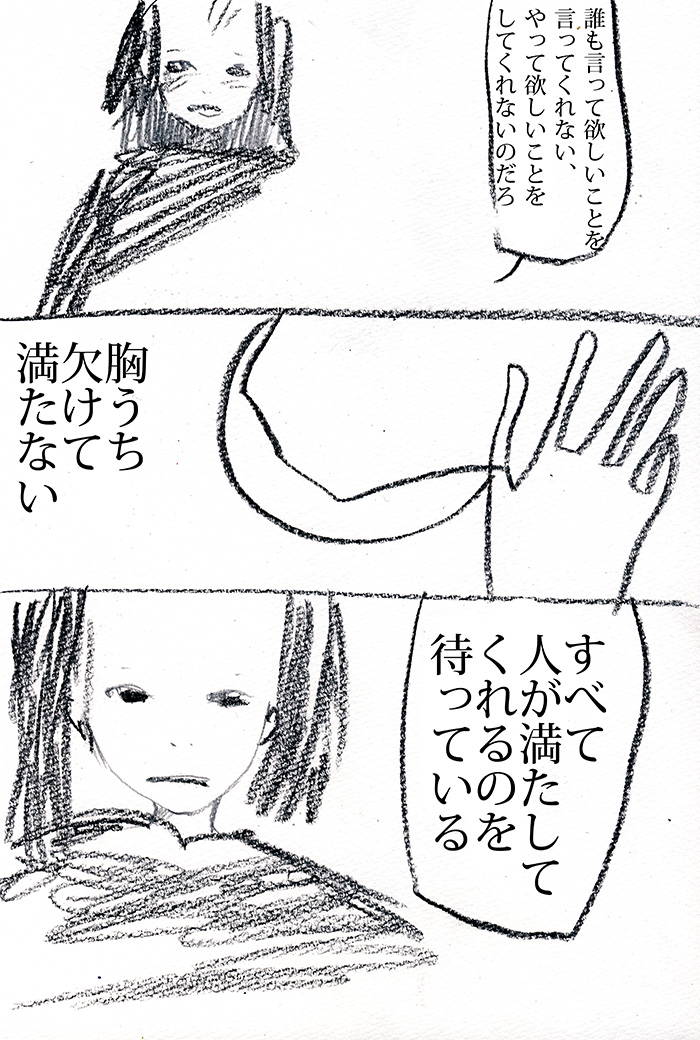 誰も言って欲しいことを
言ってくれない、
やって欲しいことを
してくれないのだろ
胸うち
欠けて
満たない
すべて
人が満たして
くれるのを
待っている